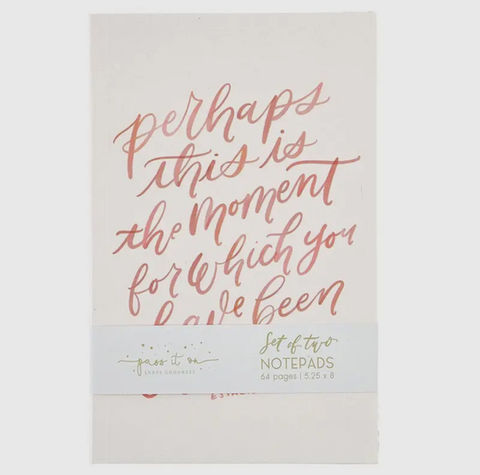 perhaps
this is
the moment
for which you
have been
pass it on
SHARE GOODNESS
set of two
NOTEPADS
64 pages | 5.25 x 8